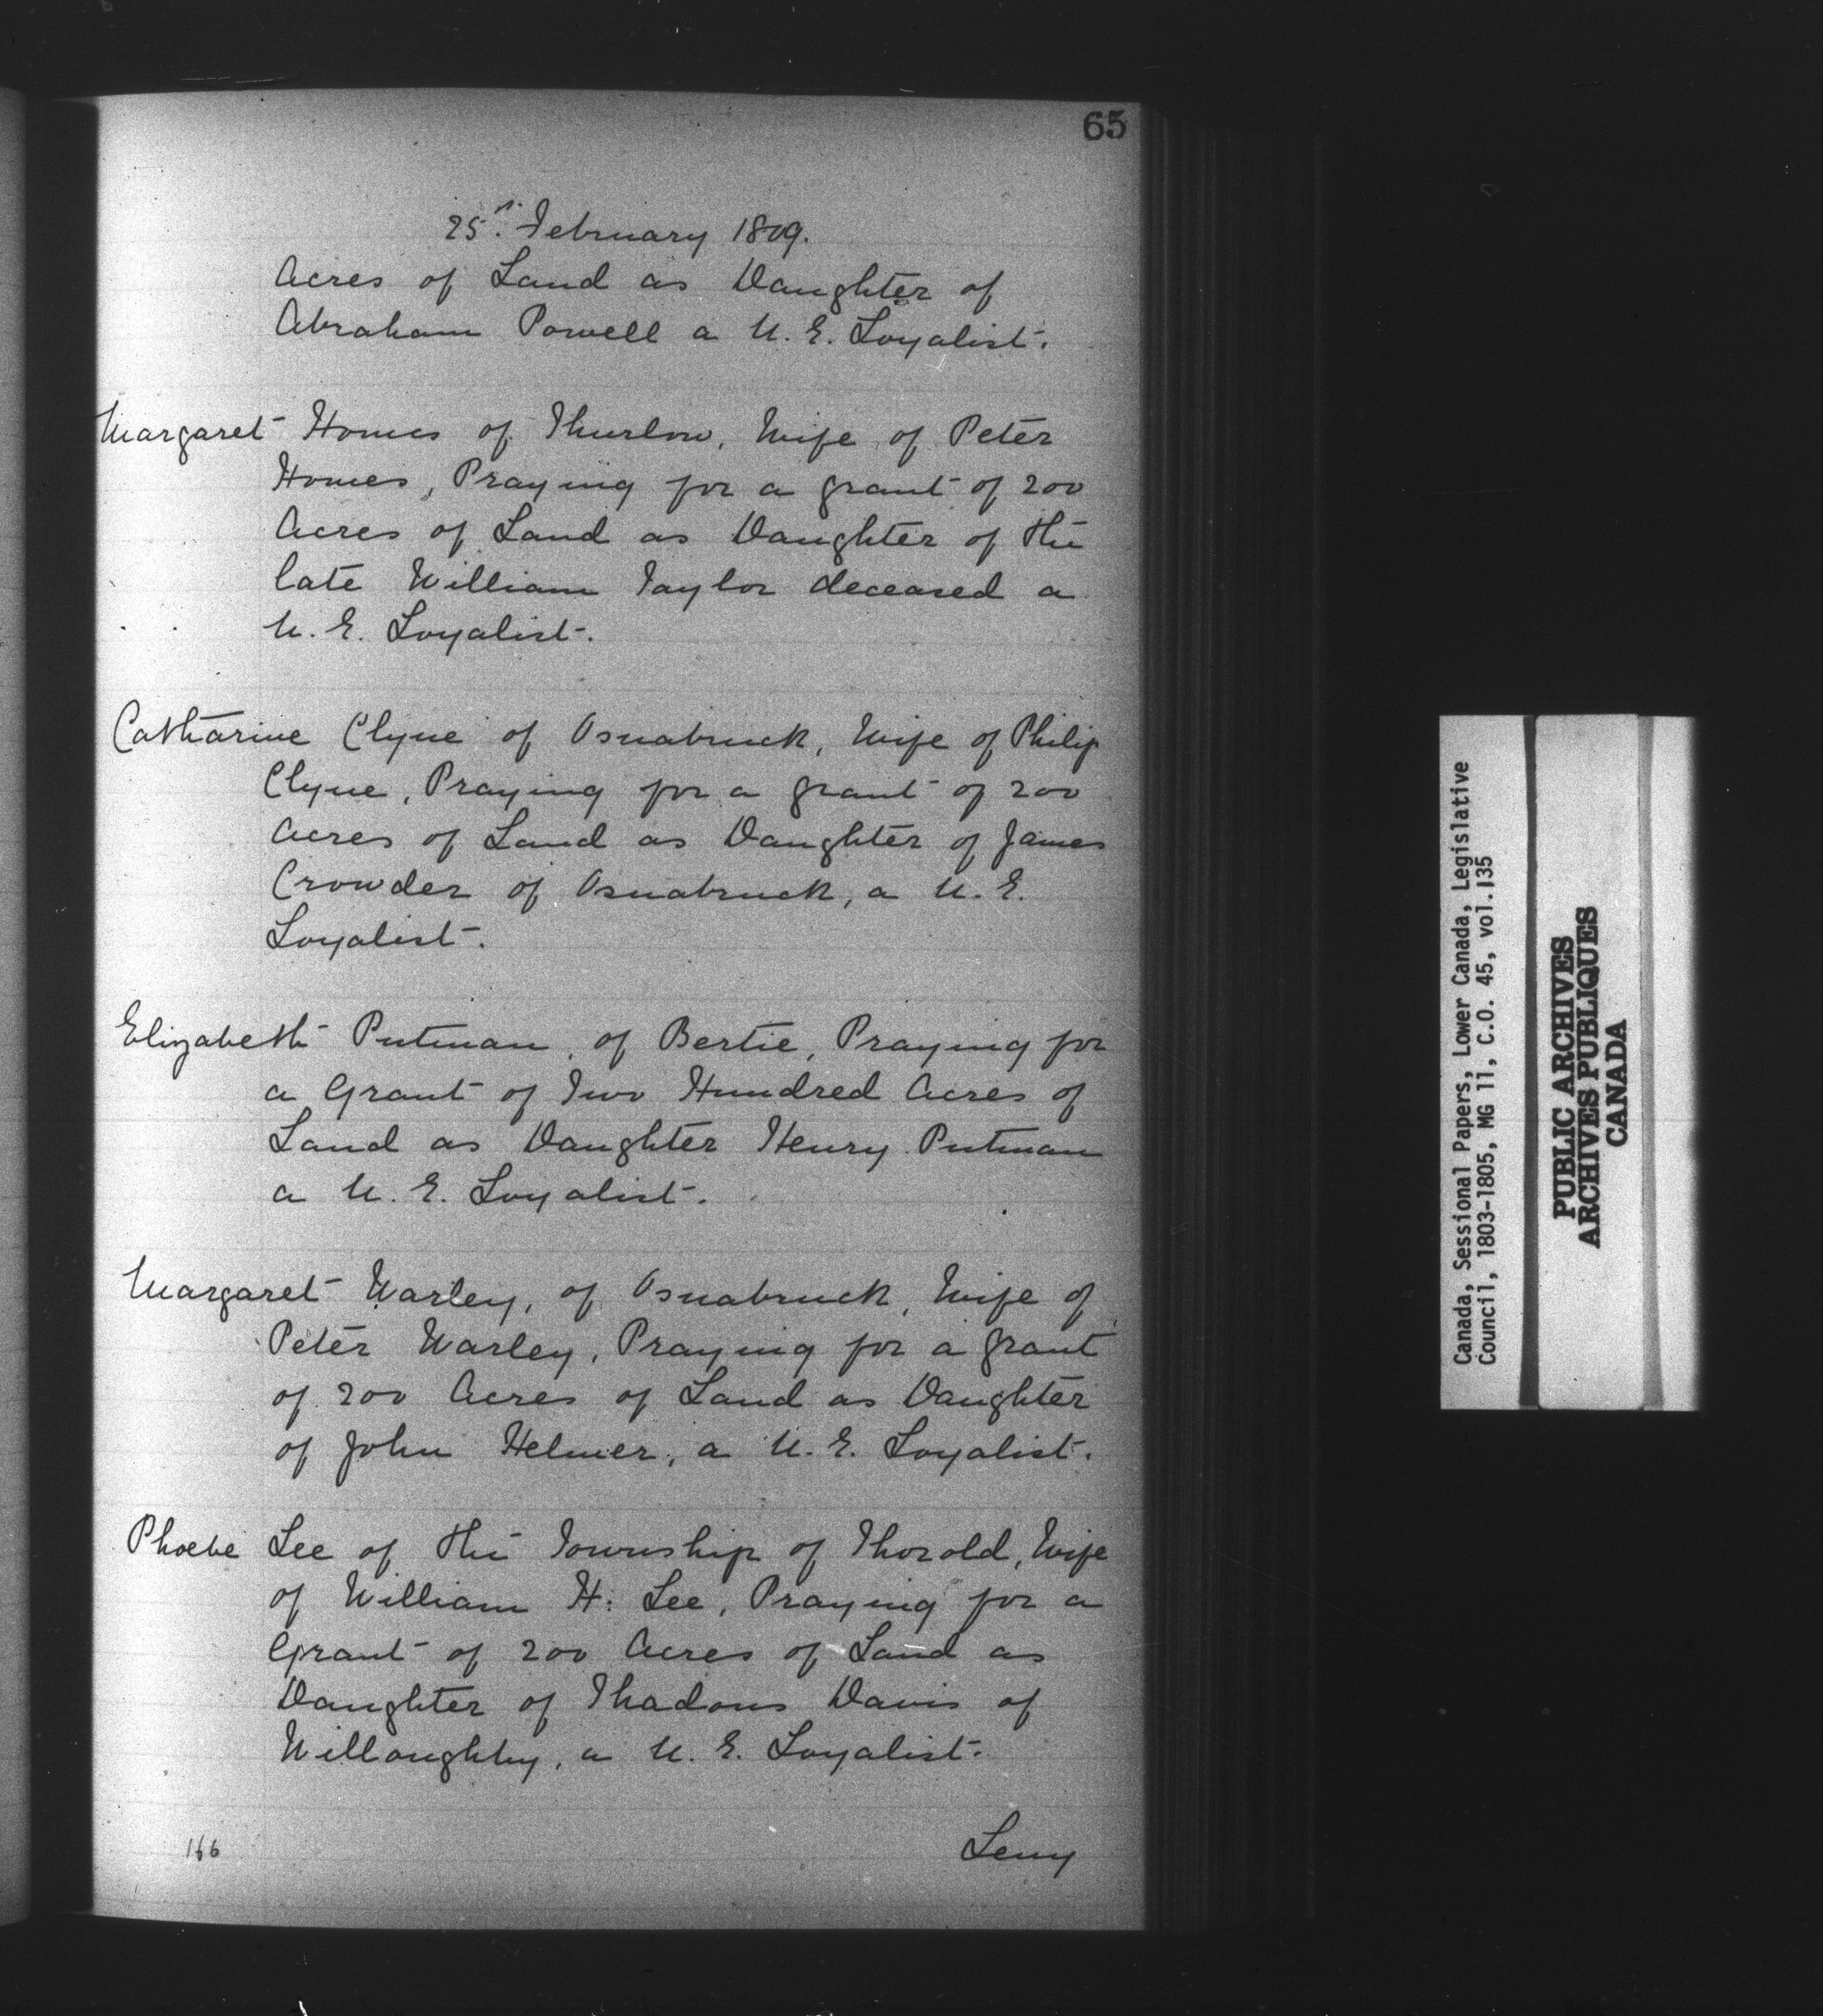 65
25th February 1809.
Acres of Land as Daughter of
Abraham Powell a U. E. Loyalist.
Margaret Homes of Thurlow, Wife of Peter
Homes, Praying for a grant of 200
Acres of Land as Daughter of the
late William Taylor deceased a
U. E. Loyalist.
Catharine Clyne of Osnabruck, Wife of Philip
Clyne, Praying for a grant of 200
Acres of Land as Daughter of James
Crowder of Osnabruck, a U. E.
Loyalist.
Elizabeth Putman, of Bertie, Praying for
a Grant of Two Hundred Acres of
Land as Daughter Henry Putman
a U. E. Loyalist.
Margaret Warley, of Osnabruck, Wife of
Peter Warley, Praying for a grant
of 200 Acres of Land as Daughter
of John Helmer, a U. E. Loyalist.
Phoebe Lee of the Township of Thorold, Wife
of William H: Lee, Praying for a
Grant of 200 Acres of Land as
Daughter of Thadous Davis of
Willoughby, a U. E. Loyalist.
166
Canada, Sessional Papers, Lower Canada, Legislative
Council, 1803-1805, MG 11, C.O. 45, vol.135
PUBLIC ARCHIVES
ARCHIVES PUBLIQUES
CANADA